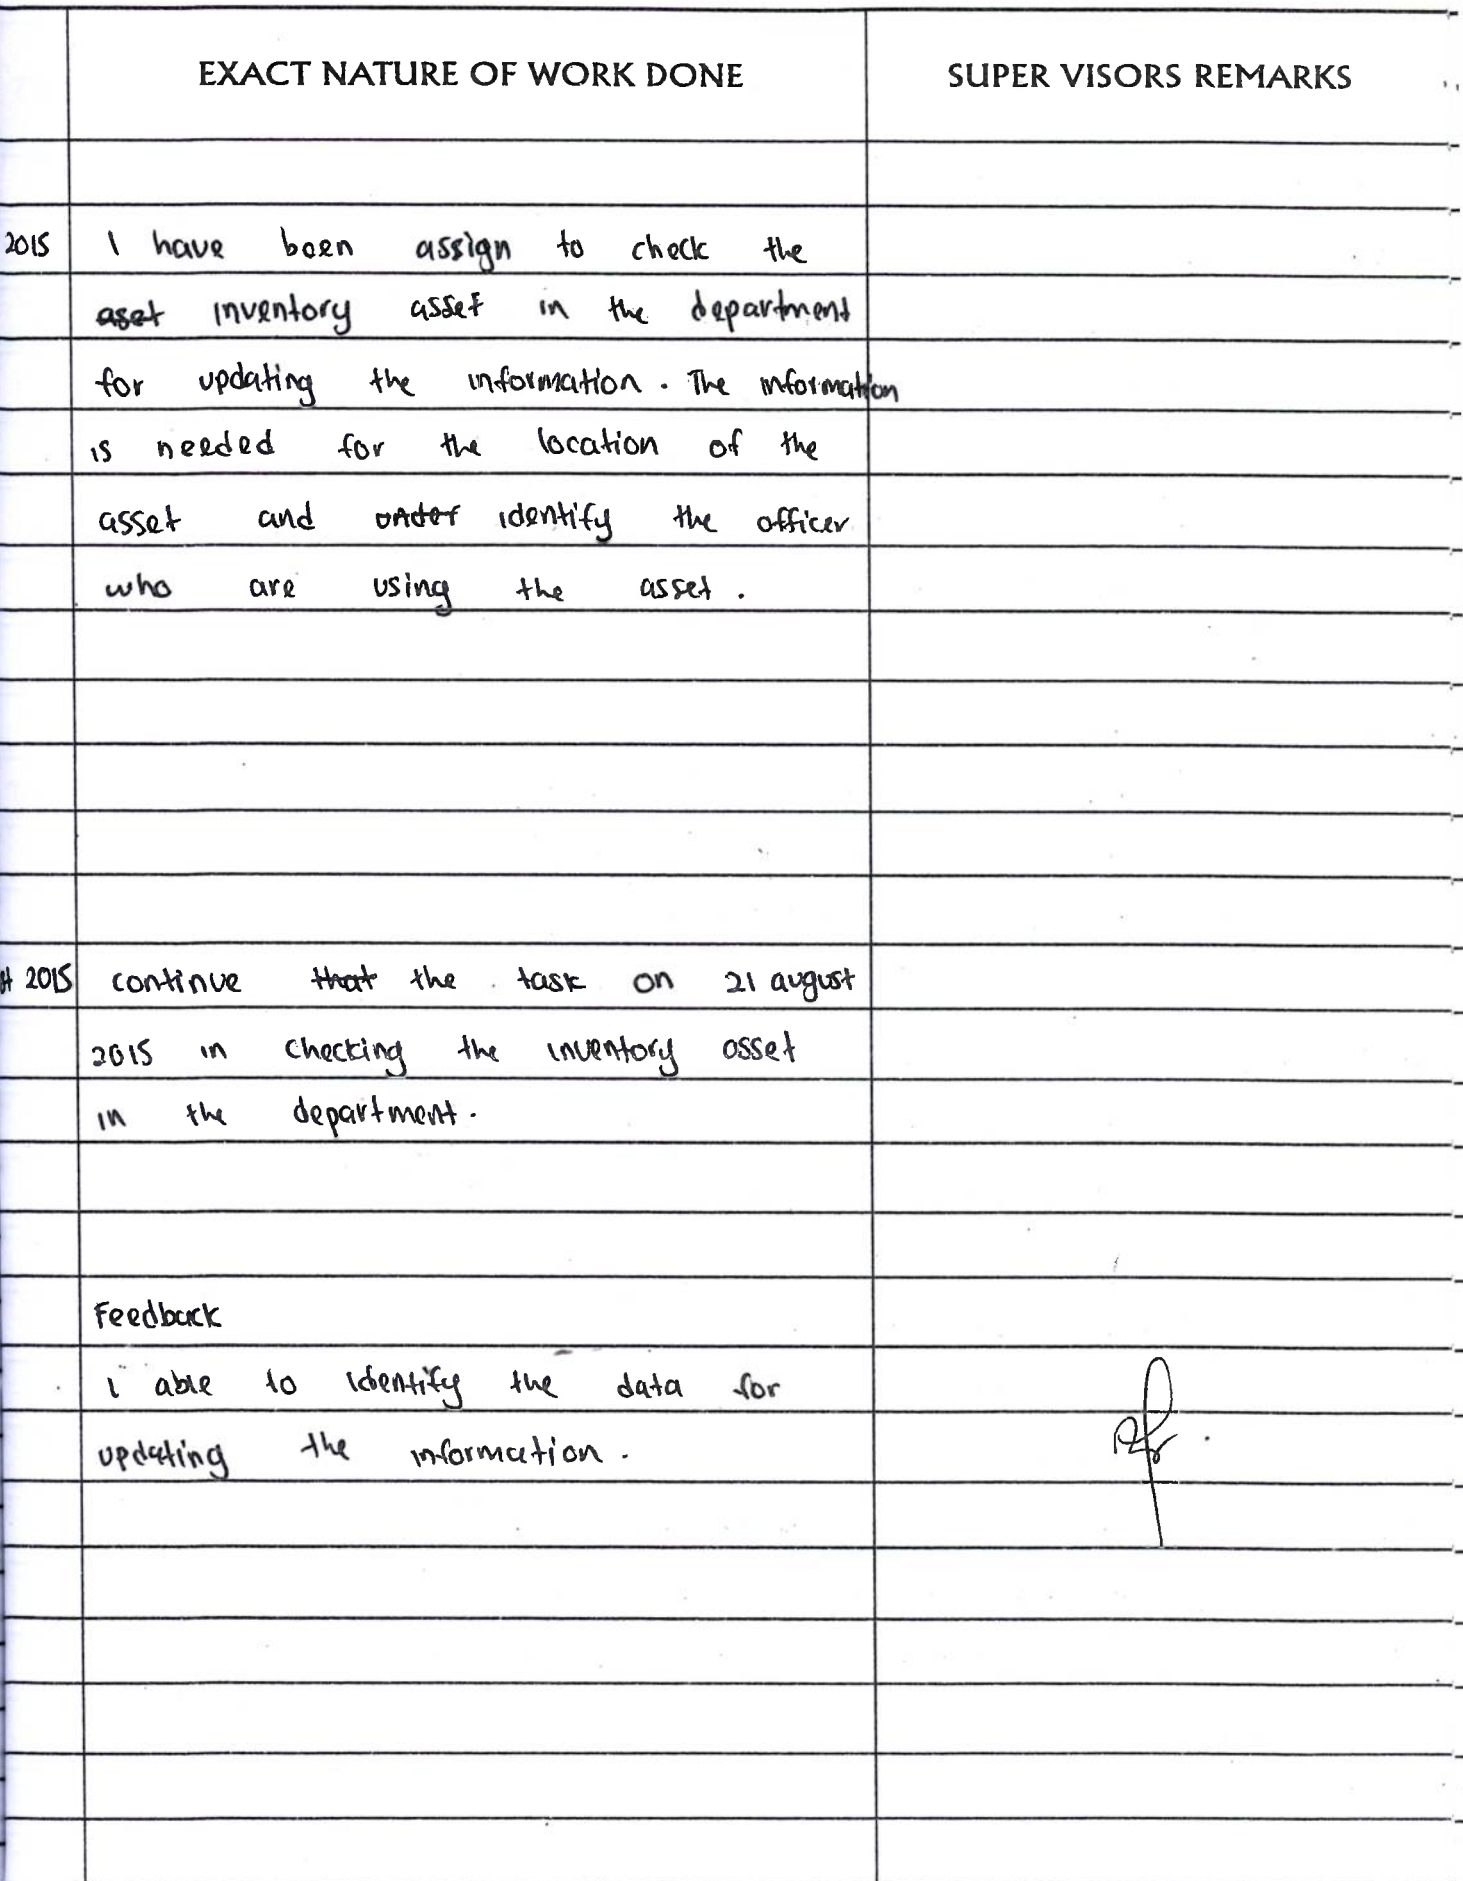 EXACT NATURE OF WORK DONE SUPER VISORS REMARKS
2015 I have been assign to check the
aset inventory asset in the department
for updating the information. The information
is needed for the location of the
asset and under identify the officer
who are using the asset.
2015 continue that the task on 21 august
2015 in checking the inventory asset
in the department.
Feedback
i able to identify the data for
updating the information.